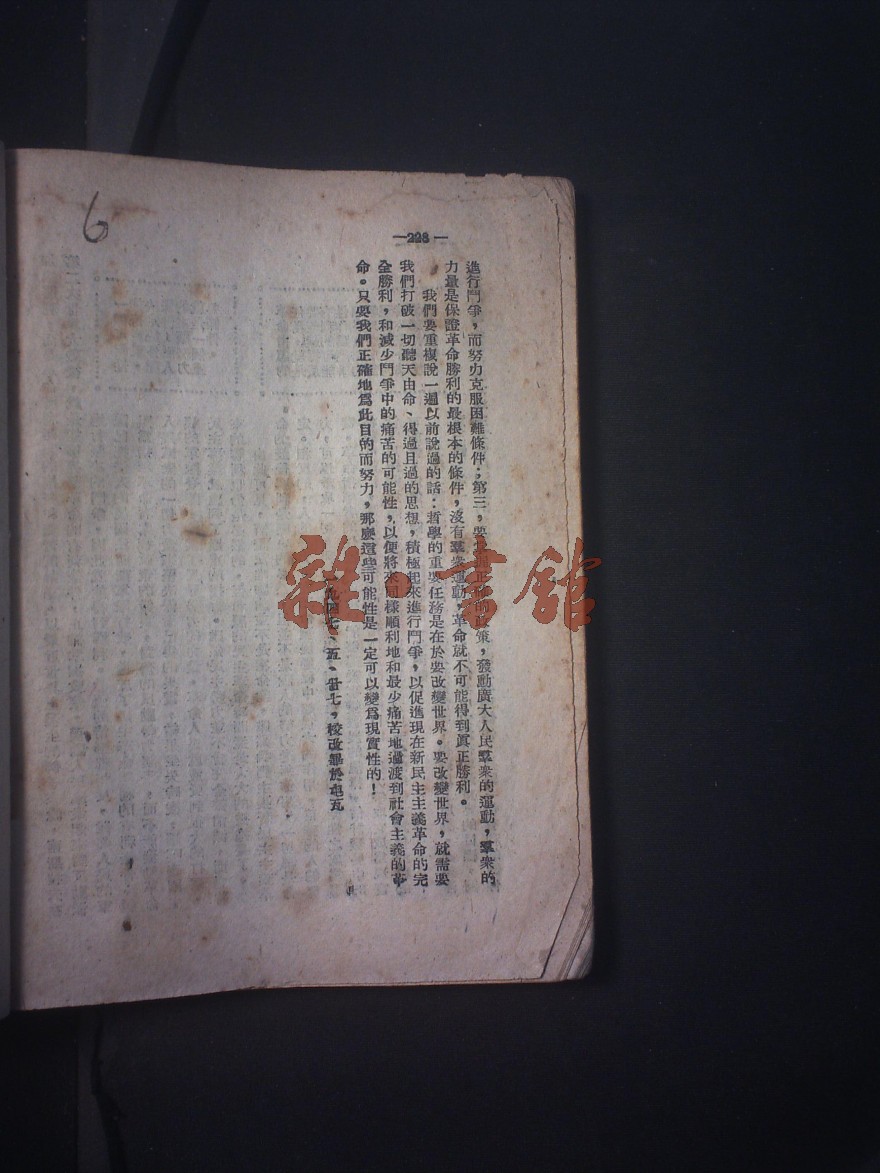 6
—228—
進行鬥爭，而努力克服困難條件；第三，要掌握正確的政策，發動廣大人民羣衆的運動，羣衆的
力量是保證革命勝利的最根本的條件，沒有羣衆運動，革命就不可能得到眞正勝利。
我們要重複說一遍以前說過的話：哲學的重要任務是在於要改變世界。要改變世界，就需要
我們打破一切聽天由命、得過且過的思想，積極起來進行鬥爭，以促進現在新民主主義革命的完
全勝利，和減少鬥爭中的痛苦的可能性，以便將來同樣順利地和最少痛苦地過渡到社會主義的革
命。只要我們正確地爲此目的而努力，那麼這些可能性是一定可以變爲現實性的！
一九四七、五、廿七，校改畢於
雜·書館